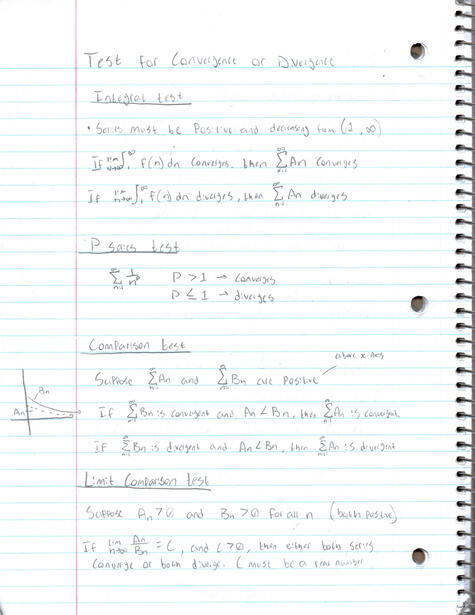 Test for Convergence or Divergence
Integral test
• Series must be Positive and decreasing from (1, ∞)
If lim n→∞ ∫₁^∞ f(n) dn converges, then ∑ n=1 ^∞ An converges
If lim n→∞ ∫₁^∞ f(n) dn diverges, then ∑ n=1 ^∞ An diverges
P series test
∑ n=1 ^∞ 1/n^p P > 1 → converges
P ≤ 1 → diverges
Comparison test
above x-Axis
Suppose ∑ n=1 ^∞ An and ∑ n=1 ^∞ Bn are Positive
Bn
An
If ∑ n=1 ^∞ Bn is convergent and An < Bn, then ∑ n=1 ^∞ An is convergent
If ∑ n=1 ^∞ Bn is divergent and An < Bn, then ∑ n=1 ^∞ An is divergent
Limit Comparison test
Suppose An > 0 and Bn > 0 for all n (both positive)
If lim n→∞ An/Bn = C, and C > 0, then either both series
converge or both diverge. C must be a real number.